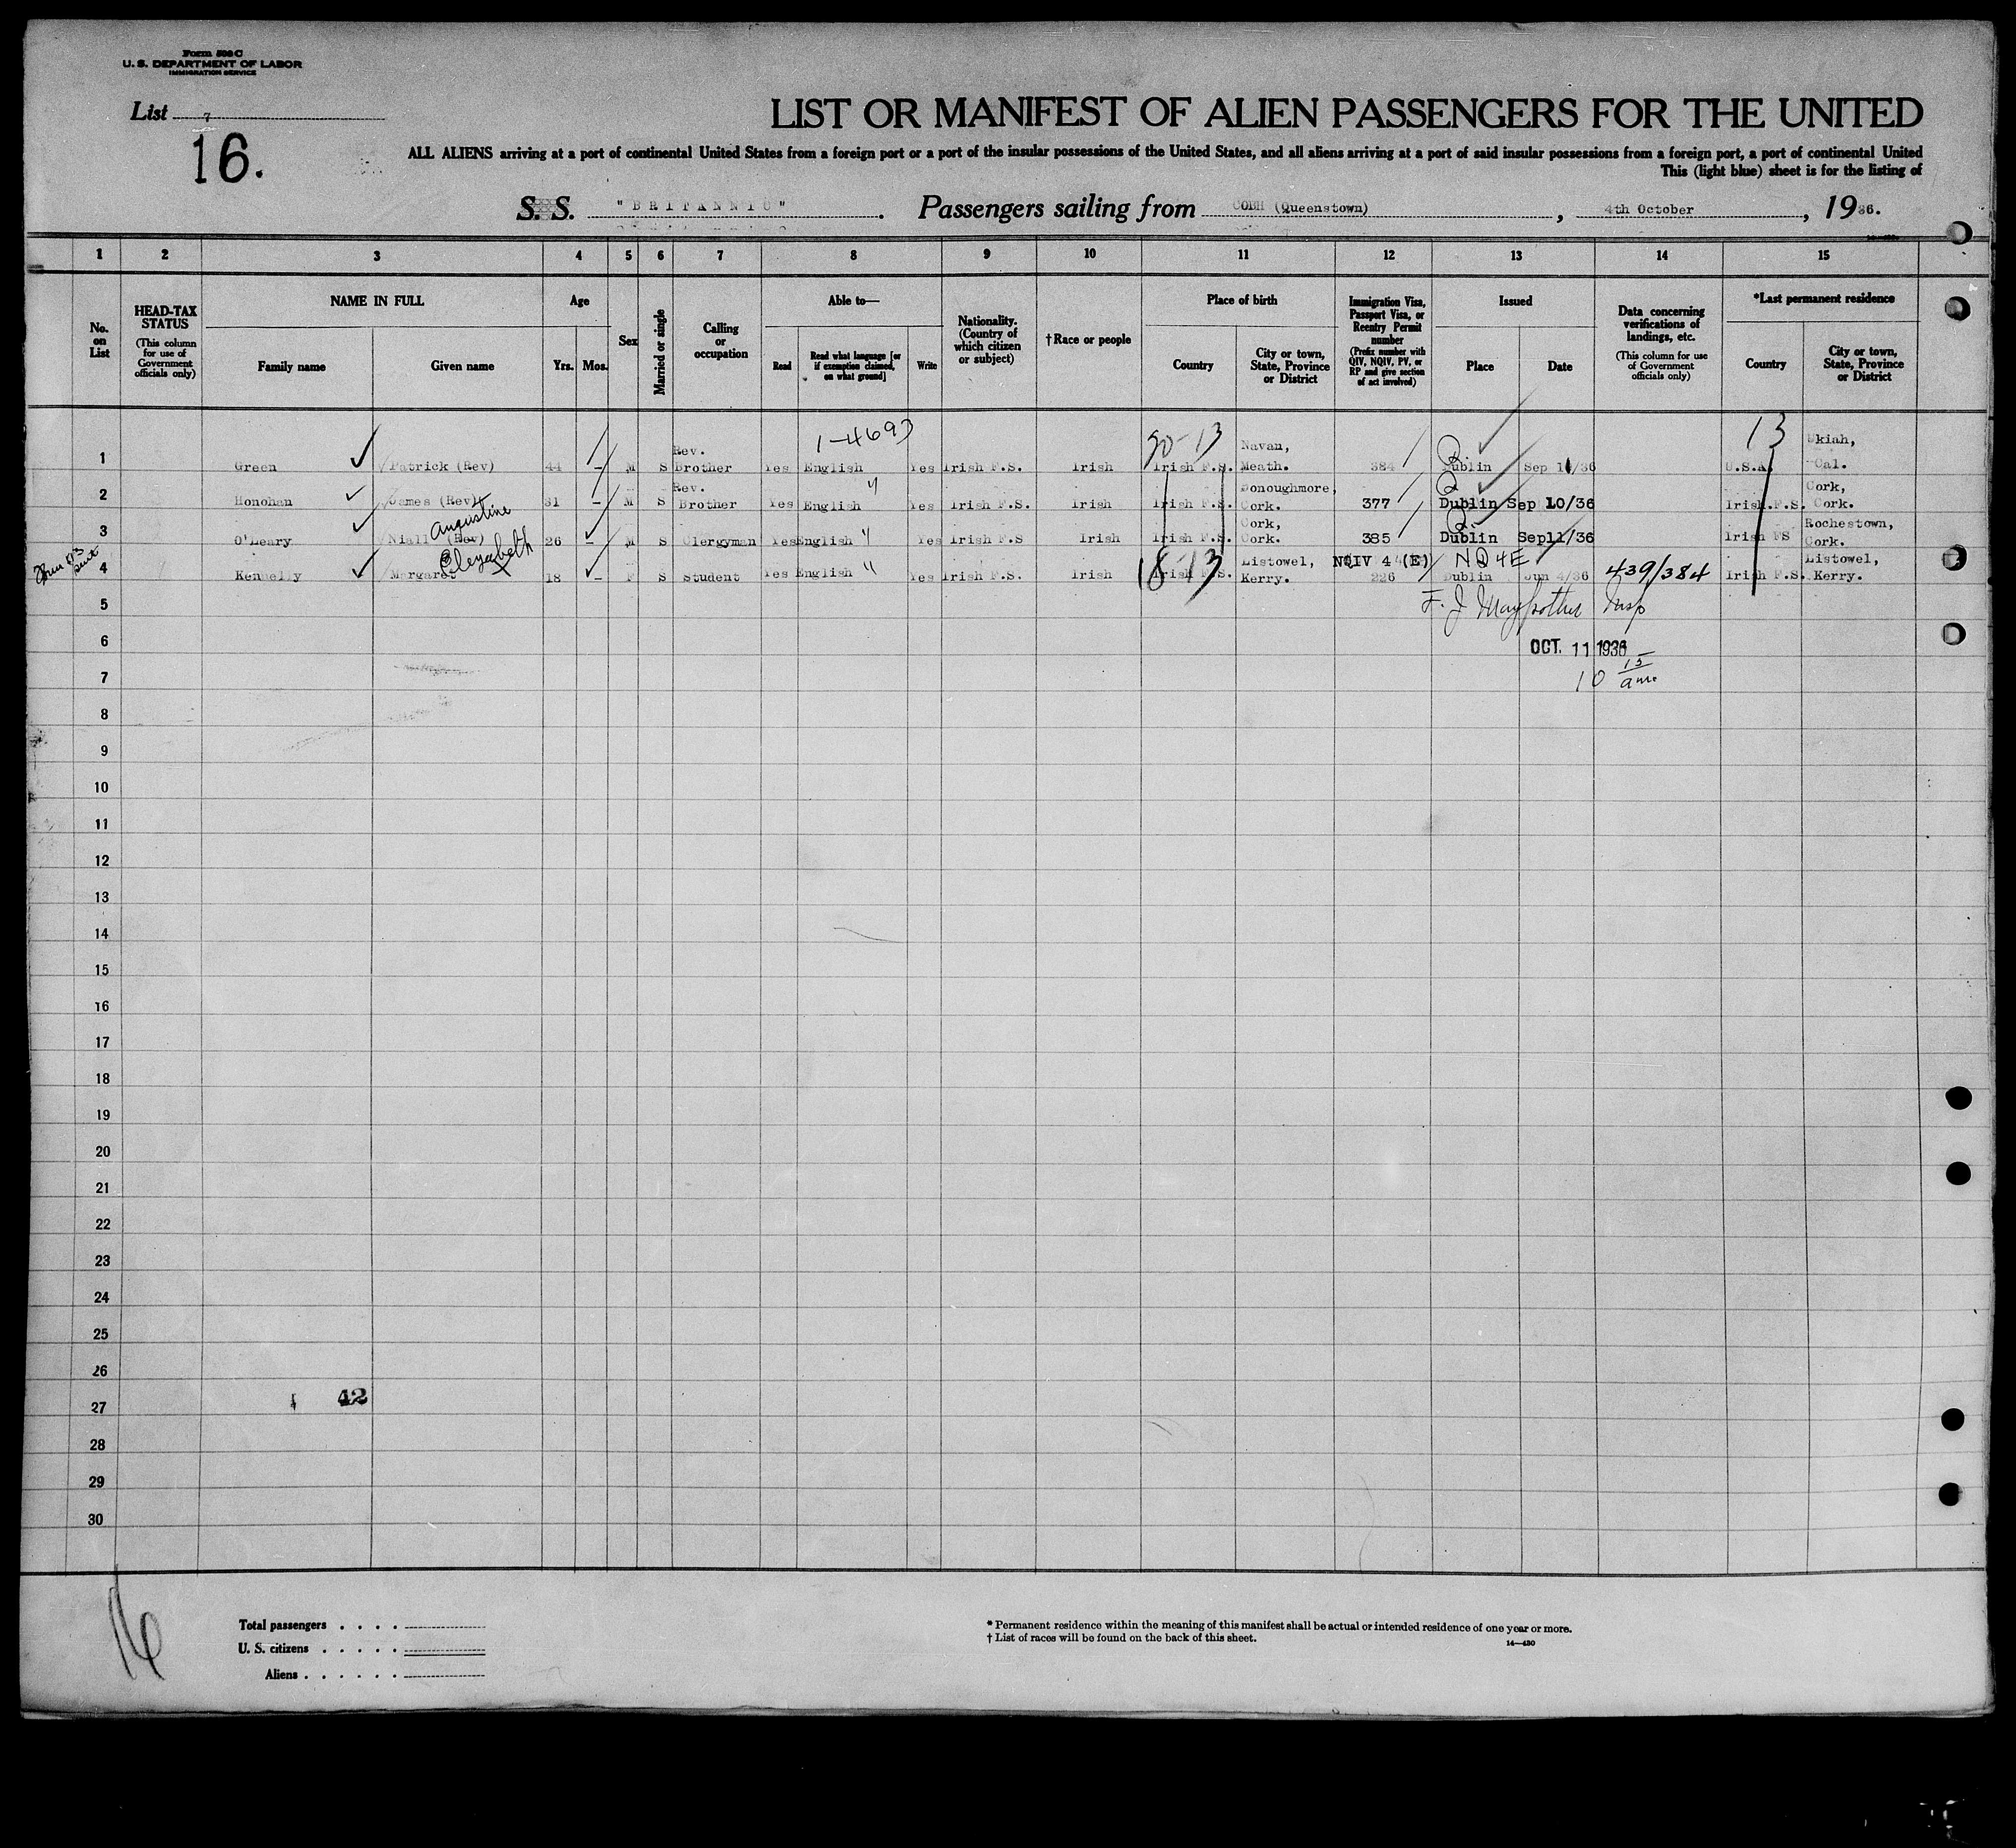 Form 500 C
U. S. DEPARTMENT OF LABOR
IMMIGRATION SERVICE
List 7
16.
LIST OR MANIFEST OF ALIEN PASSENGERS FOR THE UNITED
ALL ALIENS arriving at a port of continental United States from a foreign port or a port of the insular possessions of the United States, and all aliens arriving at a port of said insular possessions from a foreign port, a port of continental United
This (light blue) sheet is for the listing of
S. S. "BRITANNIC" . Passengers sailing from COBH (Queenstown) , 4th October , 1936.
1 2 3 4 5 6 7 8 9 10 11 12 13 14 15
No. on List
HEAD-TAX STATUS
(This column for use of Government officials only)
NAME IN FULL
Family name Given name
Age
Yrs. Mos.
Sex
Married or single
Calling or occupation
Able to—
Read
Read what language [or if exemption claimed, on what ground]
Write
Nationality. (Country of which citizen or subject)
†Race or people
Place of birth
Country
City or town, State, Province or District
Immigration Visa, Passport Visa, or Reentry Permit number
(Prefix number with QIV, NQIV, PV, or RP and give section of act involved)
Issued
Place Date
Data concerning verifications of landings, etc.
(This column for use of Government officials only)
*Last permanent residence
Country
City or town, State, Province or District
1-4693
90-13
13
1 Green Patrick (Rev) 44 - M S Rev. Brother Yes English Yes Irish F.S. Irish Irish F.S. Navan, Meath. 384 Dublin Sep 11/36 U.S.A. Ukiah, Cal.
2 Honohan James (Rev) 31 - M S Rev. Brother Yes English " Yes Irish F.S. Irish Irish F.S. Donoughmore, Cork. 377 Dublin Sep 10/36 Irish.F.S. Cork, Cork.
3 O'Leary Niall (Rev) Augustine 26 - M S Clergyman Yes English " Yes Irish F.S Irish Irish F.S. Cork, Cork. 385 Dublin Sep11/36 Irish FS Rochestown, Cork.
4 Kennelly Margaret Elezabeth 18 - F S Student Yes English " Yes Irish F.S. Irish Irish F.S. Listowel, Kerry. NQIV 4 (E) 226 Dublin Jun 4/36 439/384 Irish F.S. Listowel, Kerry.
18-13
NQ4E
5
F. J. Insp
6
OCT. 11 1936
7
10 15 am.
8
9
10
11
12
13
14
15
16
17
18
19
20
21
22
23
24
25
26
42
27
28
29
30
16
Total passengers . . . .
U. S. citizens . . . . .
Aliens . . . . . .
* Permanent residence within the meaning of this manifest shall be actual or intended residence of one year or more.
† List of races will be found on the back of this sheet.
14—430